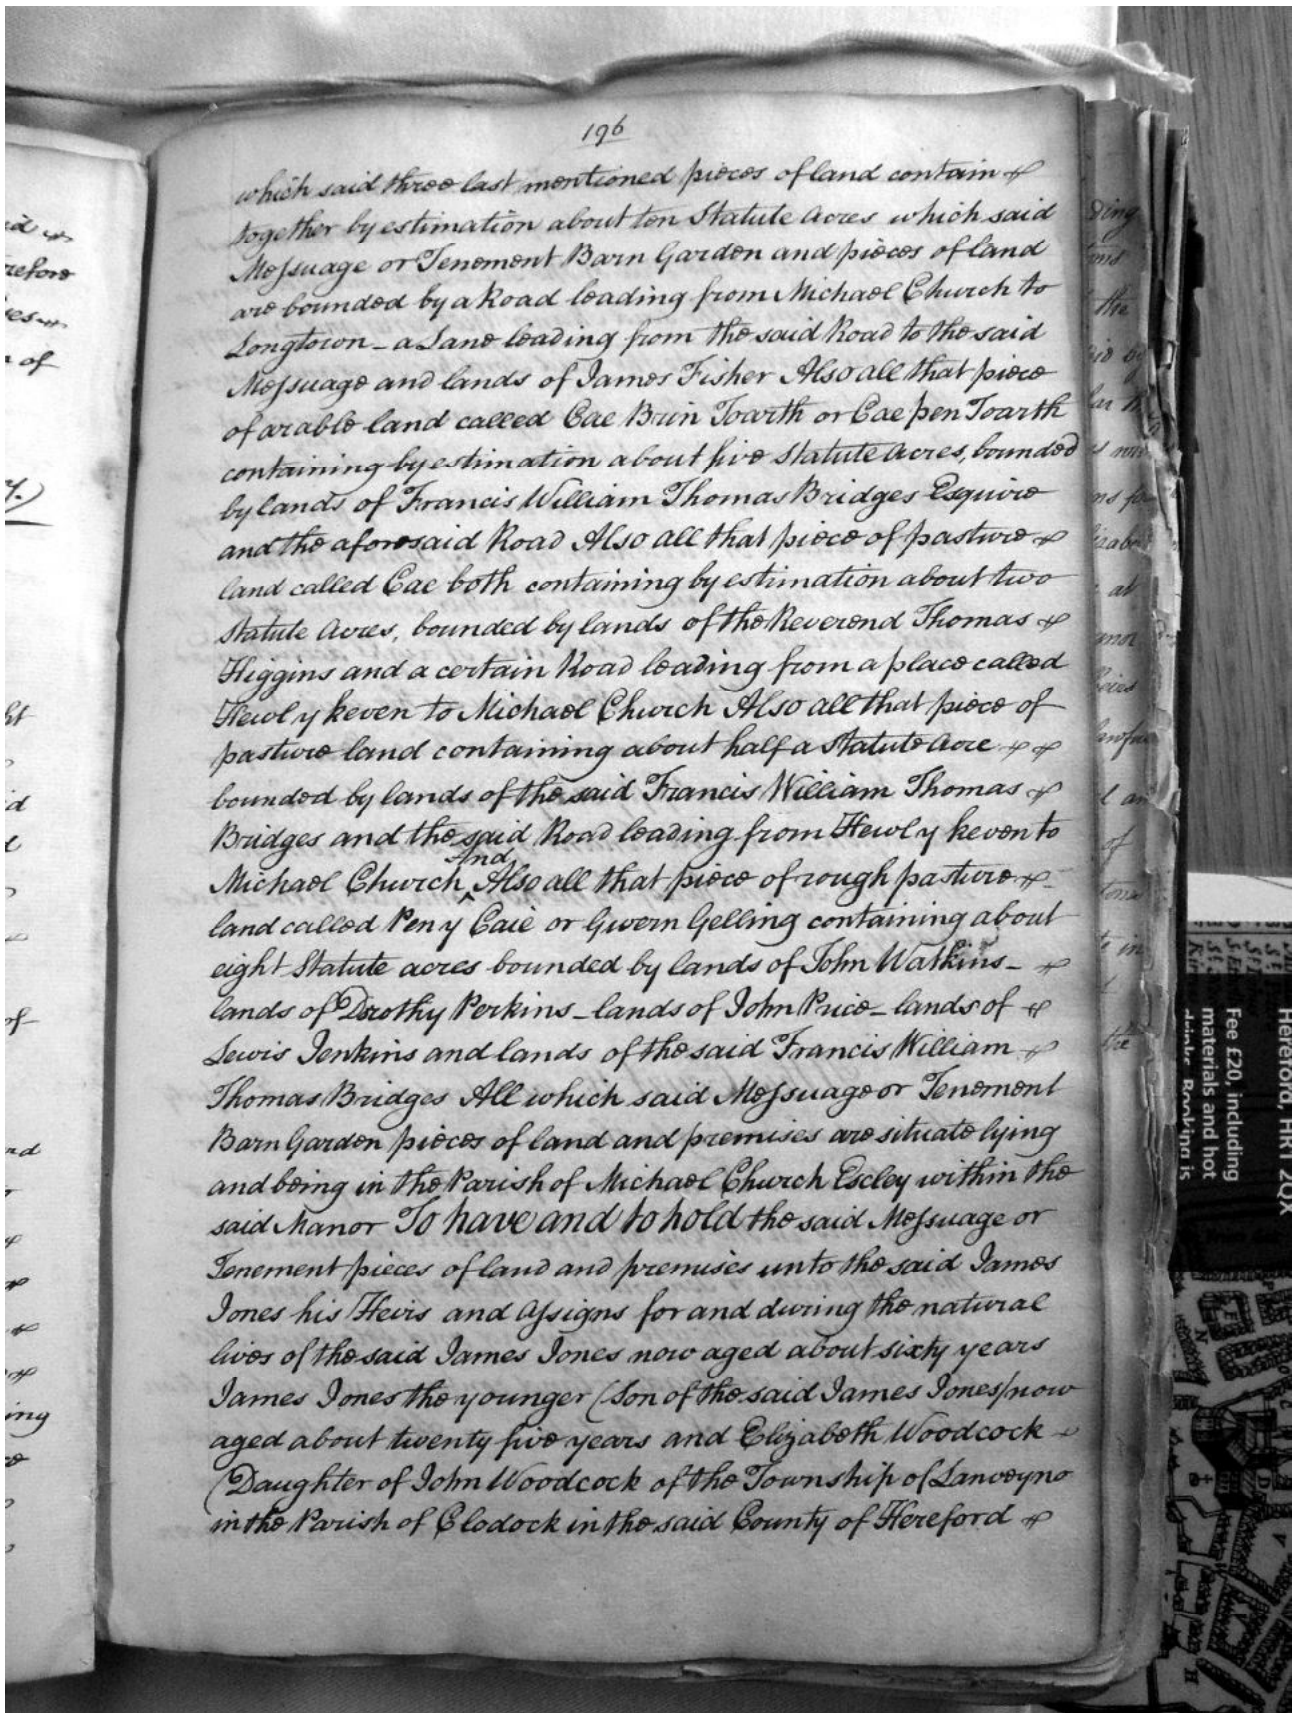 196
which said three last mentioned pieces of land contain
together by estimation about ten Statute Acres which said
Messuage or Tenement Barn Garden and pieces of land
are bounded by a Road leading from Michael Church to
Longtown _ a Lane leading from the said Road to the said
Messuage and lands of James Fisher Also all that piece
of arable land called Cae Brin Toarth or Cae pen Toarth
containing by estimation about five Statute Acres, bounded
by lands of Francis William Thomas Bridges Esquire
and the aforesaid Road Also all that piece of pasture
land called Cae both containing by estimation about two
Statute Acres, bounded by lands of the Reverend Thomas
Higgins and a certain Road leading from a place called
Hewl y keven to Michael Church Also all that piece of
pasture land containing about half a Statute Acre
bounded by lands of the said Francis William Thomas
Bridges and the said Road leading from Hewl y keven to
Michael Church And Also all that piece of rough pasture
land called Pen y Caie or Gwern Gelling containing about
eight Statute acres bounded by lands of John Watkins _
lands of Dorothy Perkins _ lands of John Price _ lands of
Lewis Jenkins and lands of the said Francis William
Thomas Bridges All which said Messuage or Tenement
Barn Garden pieces of land and premises are situate lying
and being in the Parish of Michael Church Escley within the
said Manor To have and to hold the said Messuage or
Tenement pieces of land and premises unto the said James
Jones his Heirs and Assigns for and during the natural
lives of the said James Jones now aged about sixty years
James Jones the younger (Son of the said James Jones) now
aged about twenty five years and Elizabeth Woodcock
(Daughter of John Woodcock of the Township of Lanveyno
in the Parish of Clodock in the said County of Hereford
Hereford, HR1 2QX
Fee £20, including
materials and hot
drinks. Booking is